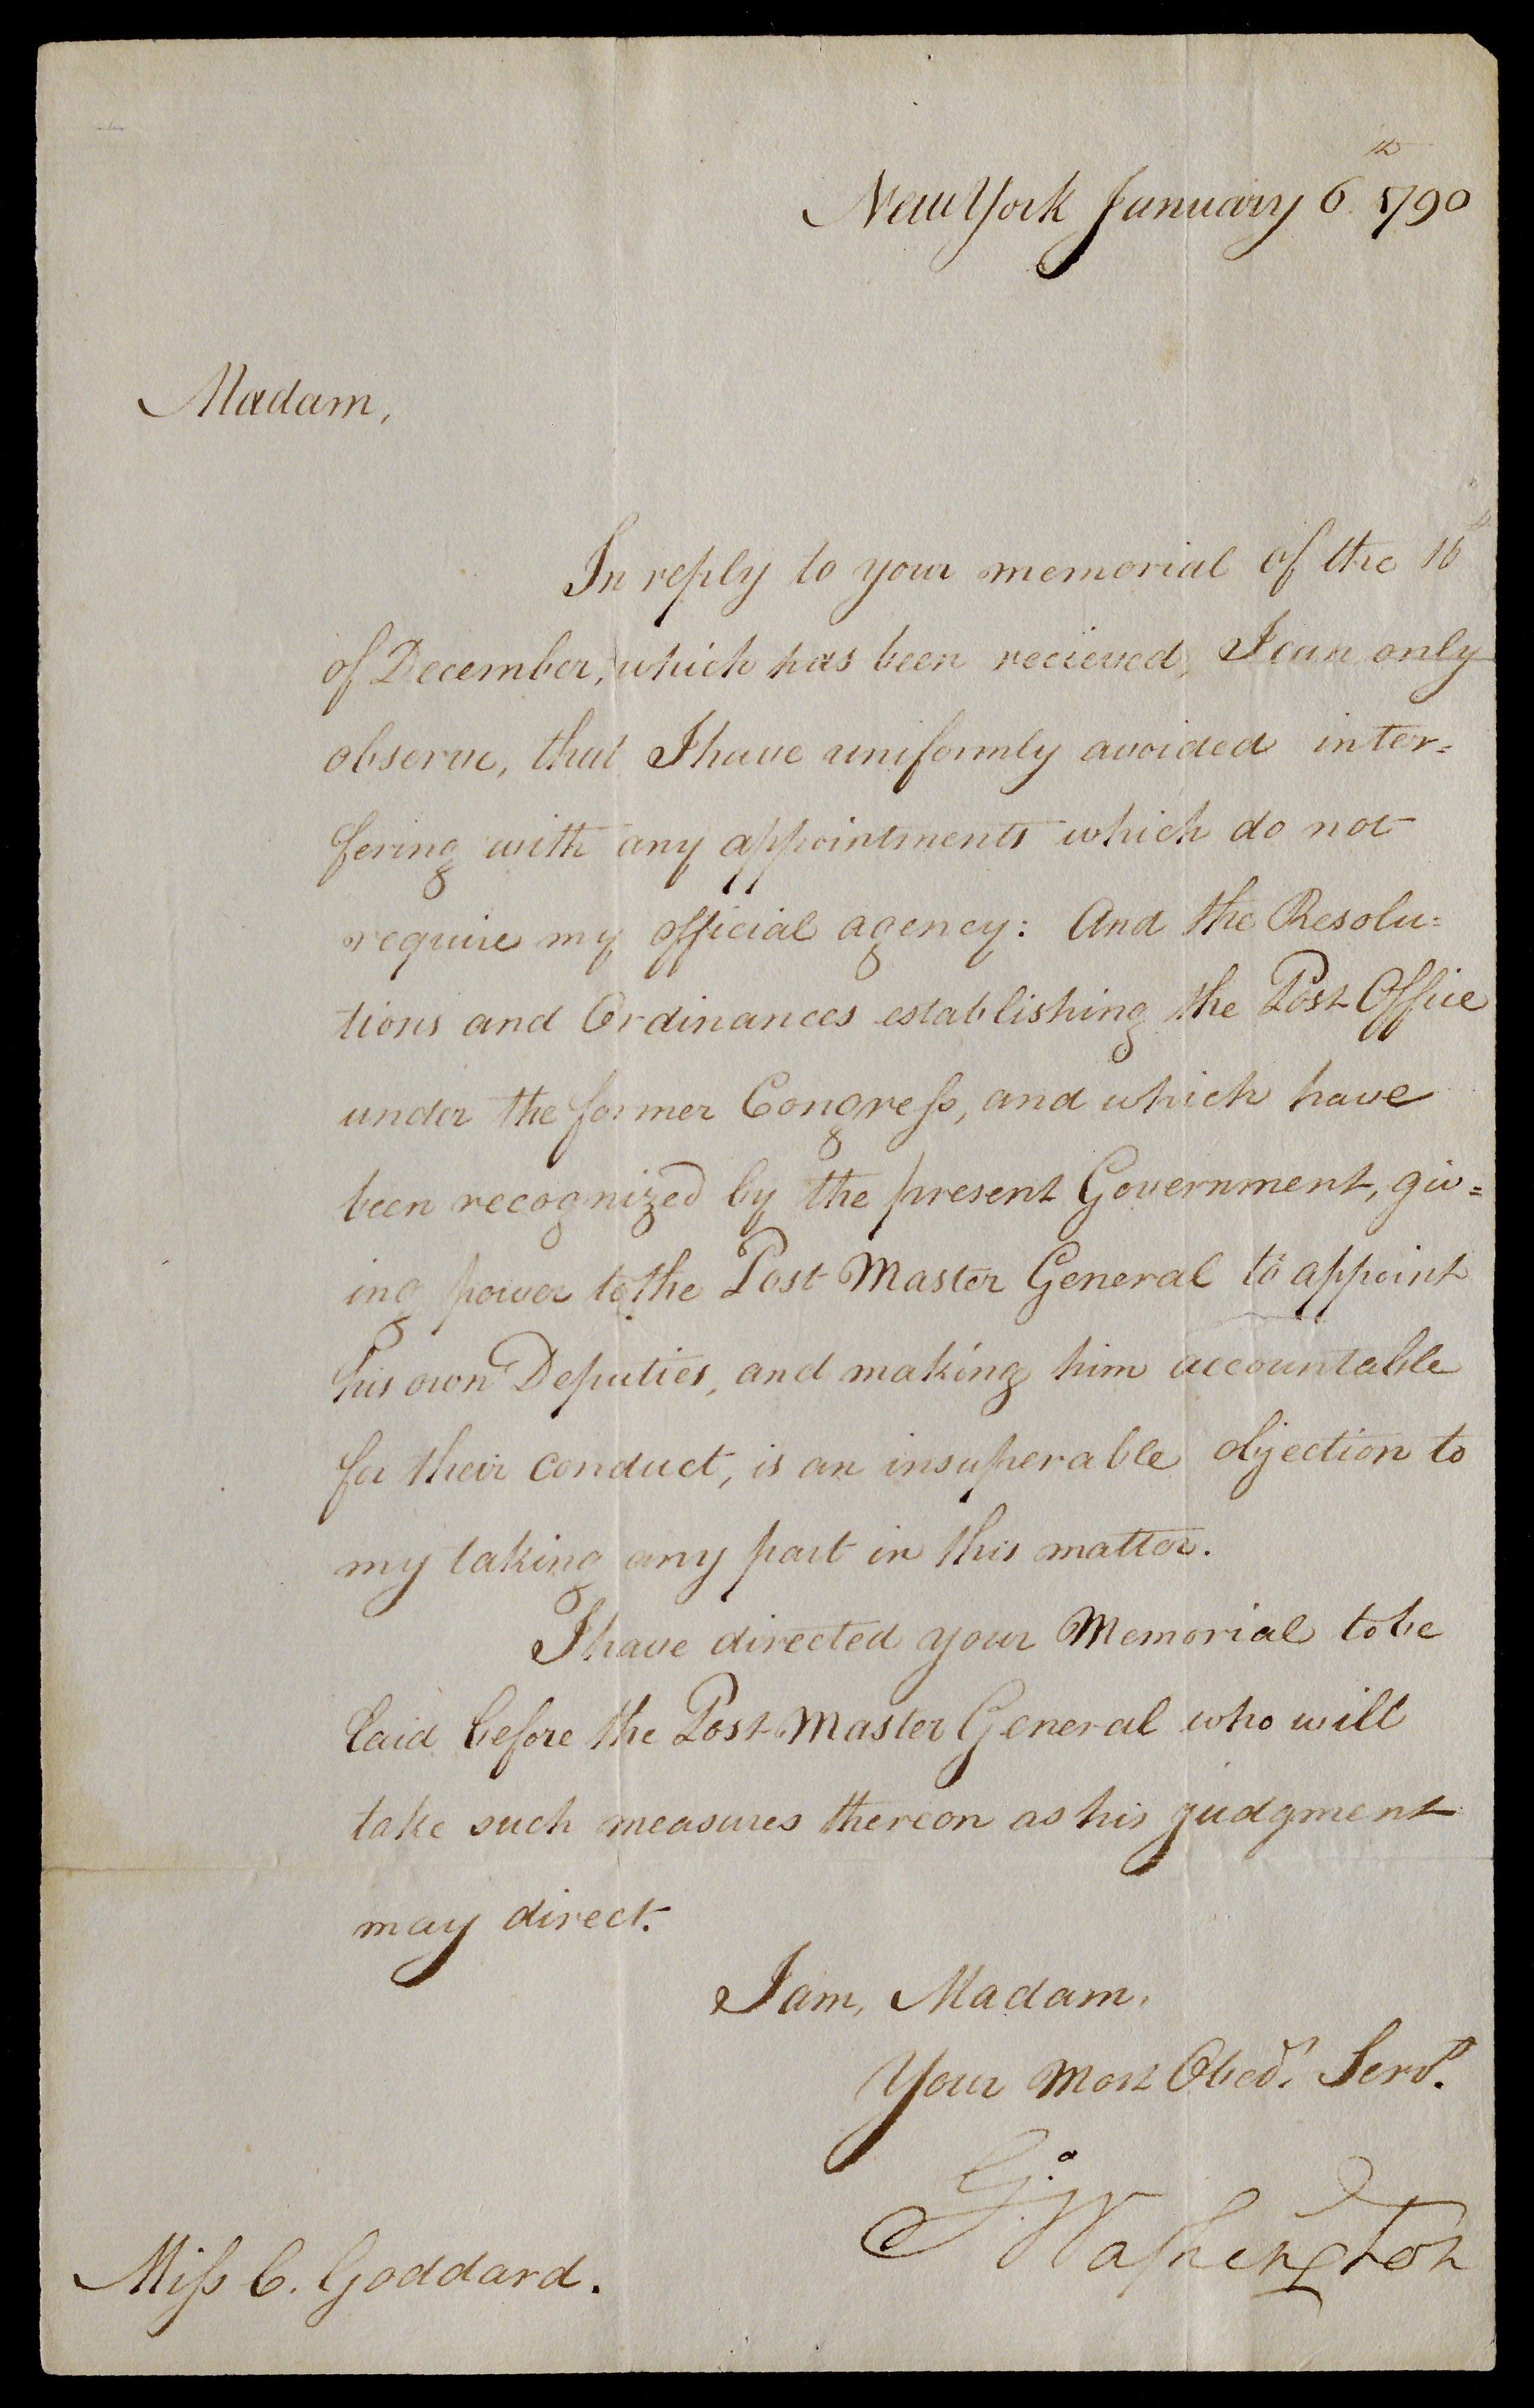 New York January 6th 1790
Madam,
In reply to your memorial of the 16
of December, which has been recieved, I can only
observe, that I have uniformly avoided inter=
fering with any appointments which do not
require my official agency: And the Resolu=
tions and Ordinances establishing the Post Office
under the former Congreſs, and which have
been recognized by the present Government, giv=
ing power to the Post Master General to appoint
his own Deputies, and making him accountable
for their conduct, is an insuperable objection to
my taking any part in this matter.
I have directed your Memorial to be
laid before the Post Master General who will
take such measures thereon as his judgment
may direct.
I am, Madam,
Your Most Obedt. Servt.
Go. Waſhington
Miſs C. Goddard.